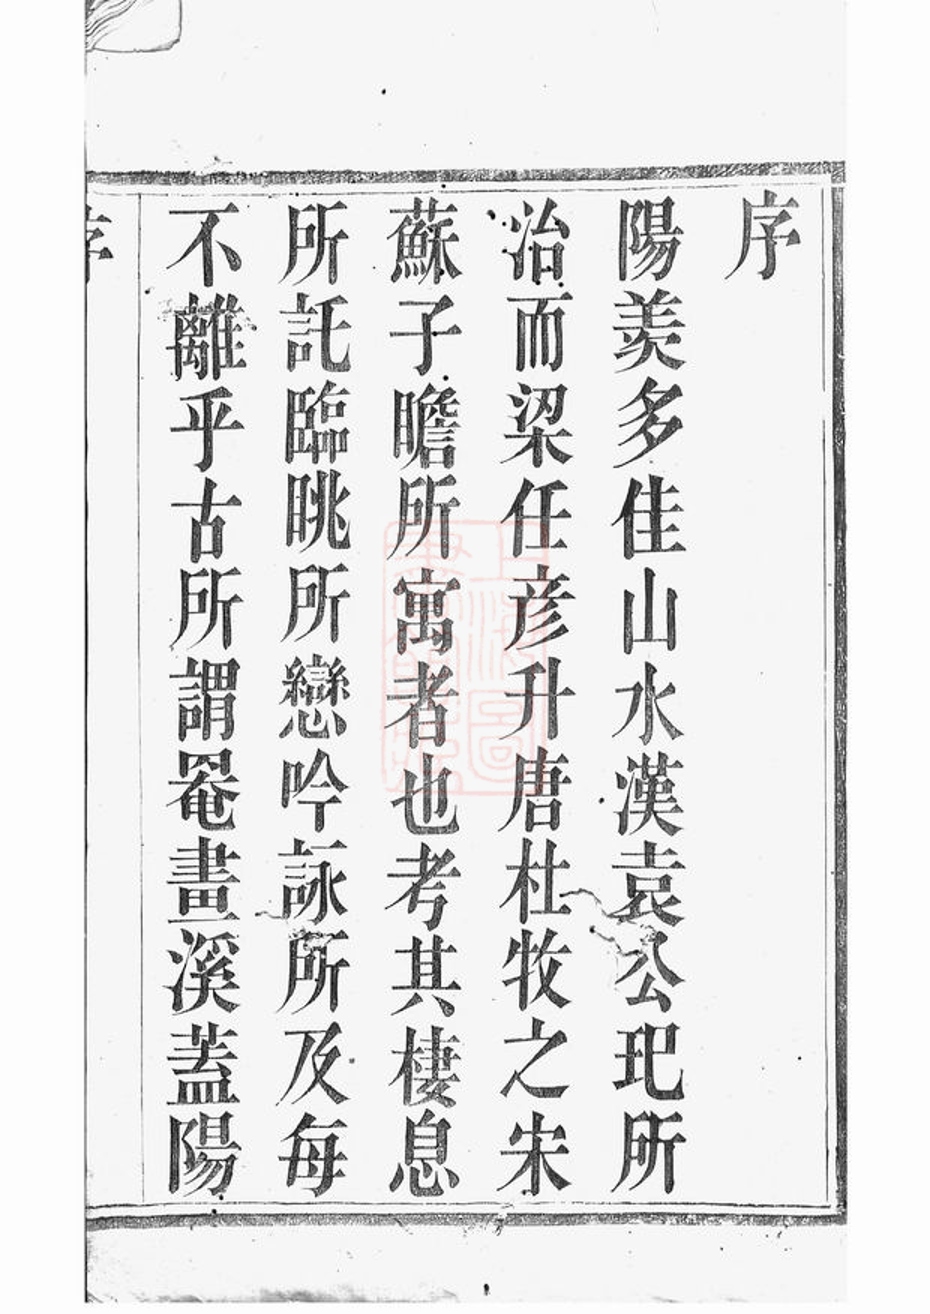 序
陽羨多佳山水漢袁公玘所
治而梁任彥升唐杜牧之宋
蘇子瞻所寓者也考其棲息
所託臨眺所戀吟詠所及每
不離乎古所謂罨畫溪葢陽
序
上海圖